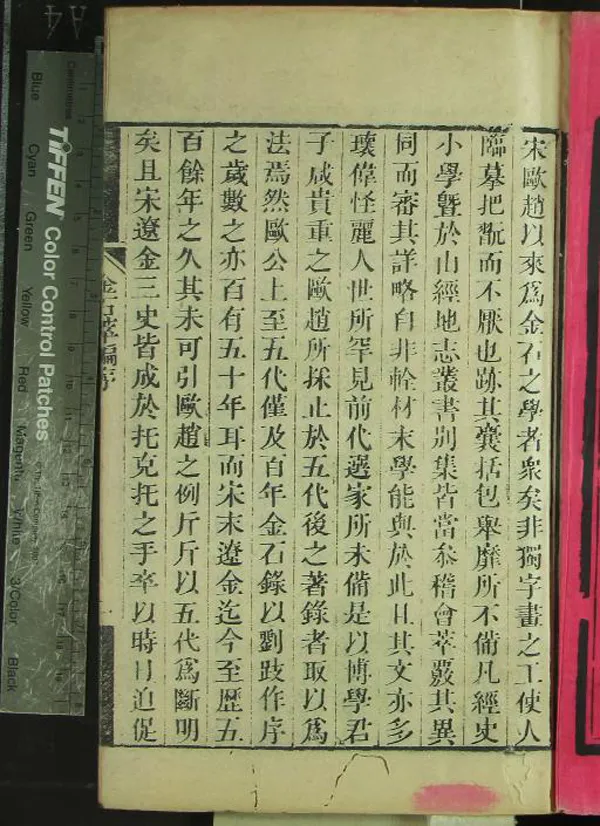 宋歐趙以來爲金石之學者衆矣非獨字畫之工使人
臨摹把翫而不厭也跡其囊括包舉靡所不備凡經史
小學曁於山經地志叢書別集皆當叅稽會萃覈其異
同而審其詳略自非輇材末學能與於此且其文亦多
瓌偉怪麗人世所罕見前代選家所未備是以博學君
子咸貴重之歐趙所採止於五代後之著錄者取以爲
法焉然歐公上至五代僅及百年金石錄以劉跂作序
之歲數之亦百有五十年耳而宋末遼金迄今至歷五
百餘年之久其未可引歐趙之例斤斤以五代爲斷明
矣且宋遼金三史皆成於托克托之手卒以時日迫促
金石萃編序
一
TIFFEN Color Control Patches
Centimetres
Blue
Cyan
Green
Yellow
Red
Magenta
White
3/Color
Black